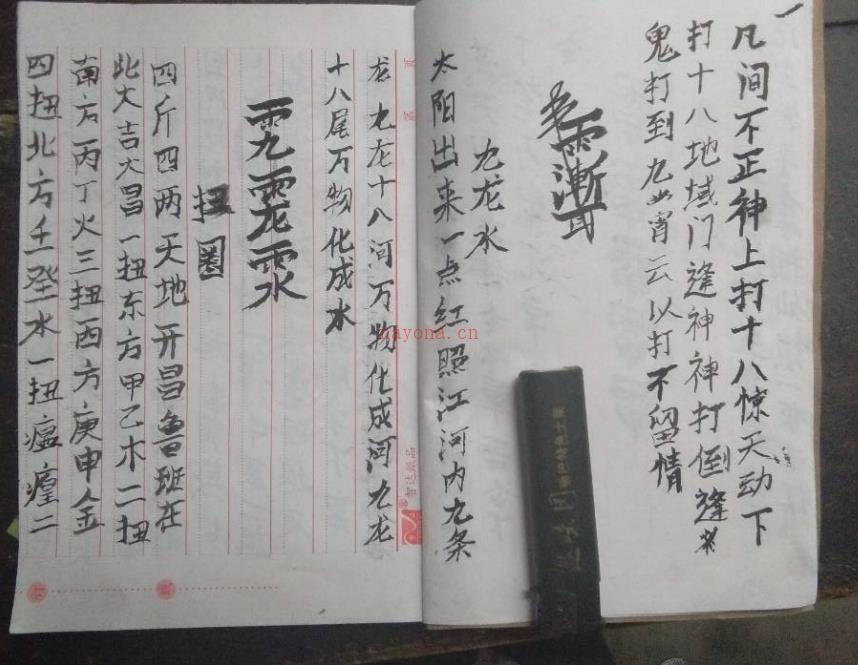 一
凡间不正神上打十八惊天动下
打十八地域门逢神神打倒逢
鬼打到九
霄云以打不留情
九龙水
太阳出来一点红照江河内九条
龙九龙十八河万物化成河九龙
十八尾万物化成水
扭圈
四斤四两天地开昌鲁班在
此大吉大昌一扭东方甲乙木二扭
南方丙丁火三扭西方庚申金
四扭北方壬癸水一扭瘟癀二
智达纸品
nayona.cn